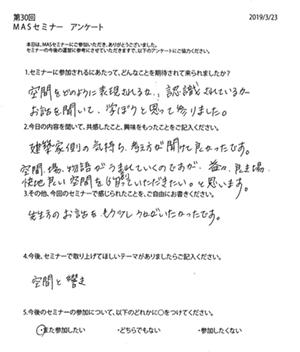 第30回
MASセミナー アンケート
2019/3/23
本日は、MASセミナーにご参加いただき、ありがとうございました。
セミナーの今後の運営に参考にさせていただきますので、以下のアンケートにご協力ください。
1.セミナーに参加されるにあたって、どんなことを期待されて来られましたか?
空間をどのように表現されるか、認識されているか
お話を聞いて、学ぼうと思って参りました。
2.今日の内容を聞いて、共感したこと、興味をもったことをご記入ください。
建築家側の気持ち、考え方が聞けて良かったです。
空間、場、物語がうまれていくのですが、益々、良き場、
快地良い空間を創っていただきたい。と思います。
3.その他、今回のセミナーで感じられたことを、ご自由にお書きください。
先生方のお話をもう少しうかがいたかったです。
4.今後、セミナーで取り上げてほしいテーマがありましたらご記入ください。
空間と響き
5.今後のセミナーの参加について、以下のどれかに○をつけてください。
・また参加したい ・どちらでもない ・参加したくない